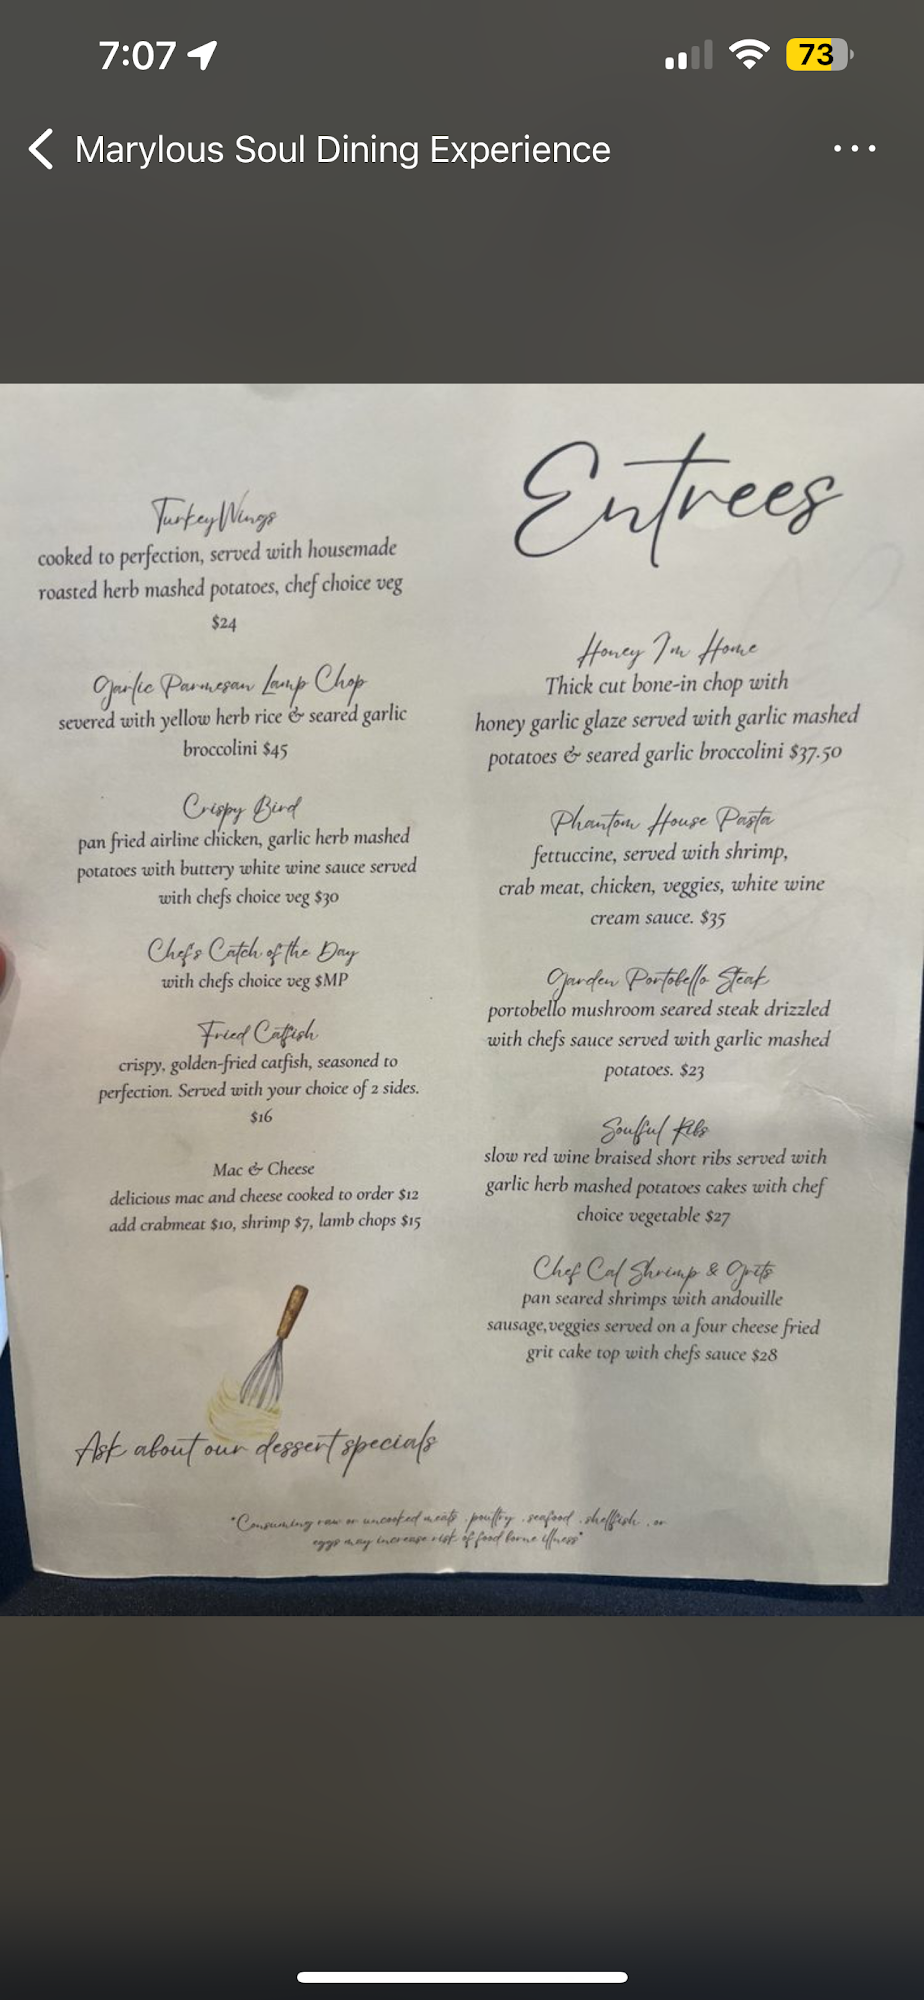 7:07
73
Marylous Soul Dining Experience
Entrees
Turkey Wings
cooked to perfection, served with housemade
roasted herb mashed potatoes, chef choice veg
$24
Garlic Parmesan Lamp Chop
severed with yellow herb rice & seared garlic
broccolini $45
Crispy Bird
pan fried airline chicken, garlic herb mashed
potatoes with buttery white wine sauce served
with chefs choice veg $30
Chef's Catch of the Day
with chefs choice veg $MP
Fried Catfish
crispy, golden-fried catfish, seasoned to
perfection. Served with your choice of 2 sides.
$16
Mac & Cheese
delicious mac and cheese cooked to order $12
add crabmeat $10, shrimp $7, lamb chops $15
Ask about our dessert specials
Honey Im Home
Thick cut bone-in chop with
honey garlic glaze served with garlic mashed
potatoes & seared garlic broccolini $37.50
Phantom House Pasta
fettuccine, served with shrimp,
crab meat, chicken, veggies, white wine
cream sauce. $35
Garden Portobello Steak
portobello mushroom seared steak drizzled
with chefs sauce served with garlic mashed
potatoes. $23
Soulful Ribs
slow red wine braised short ribs served with
garlic herb mashed potatoes cakes with chef
choice vegetable $27
Chef Cal Shrimp & Grits
pan seared shrimps with andouille
sausage,veggies served on a four cheese fried
grit cake top with chefs sauce $28
"Consuming raw or uncooked meats , poultry , seafood , shellfish , or
eggs may increase risk of food borne illness"